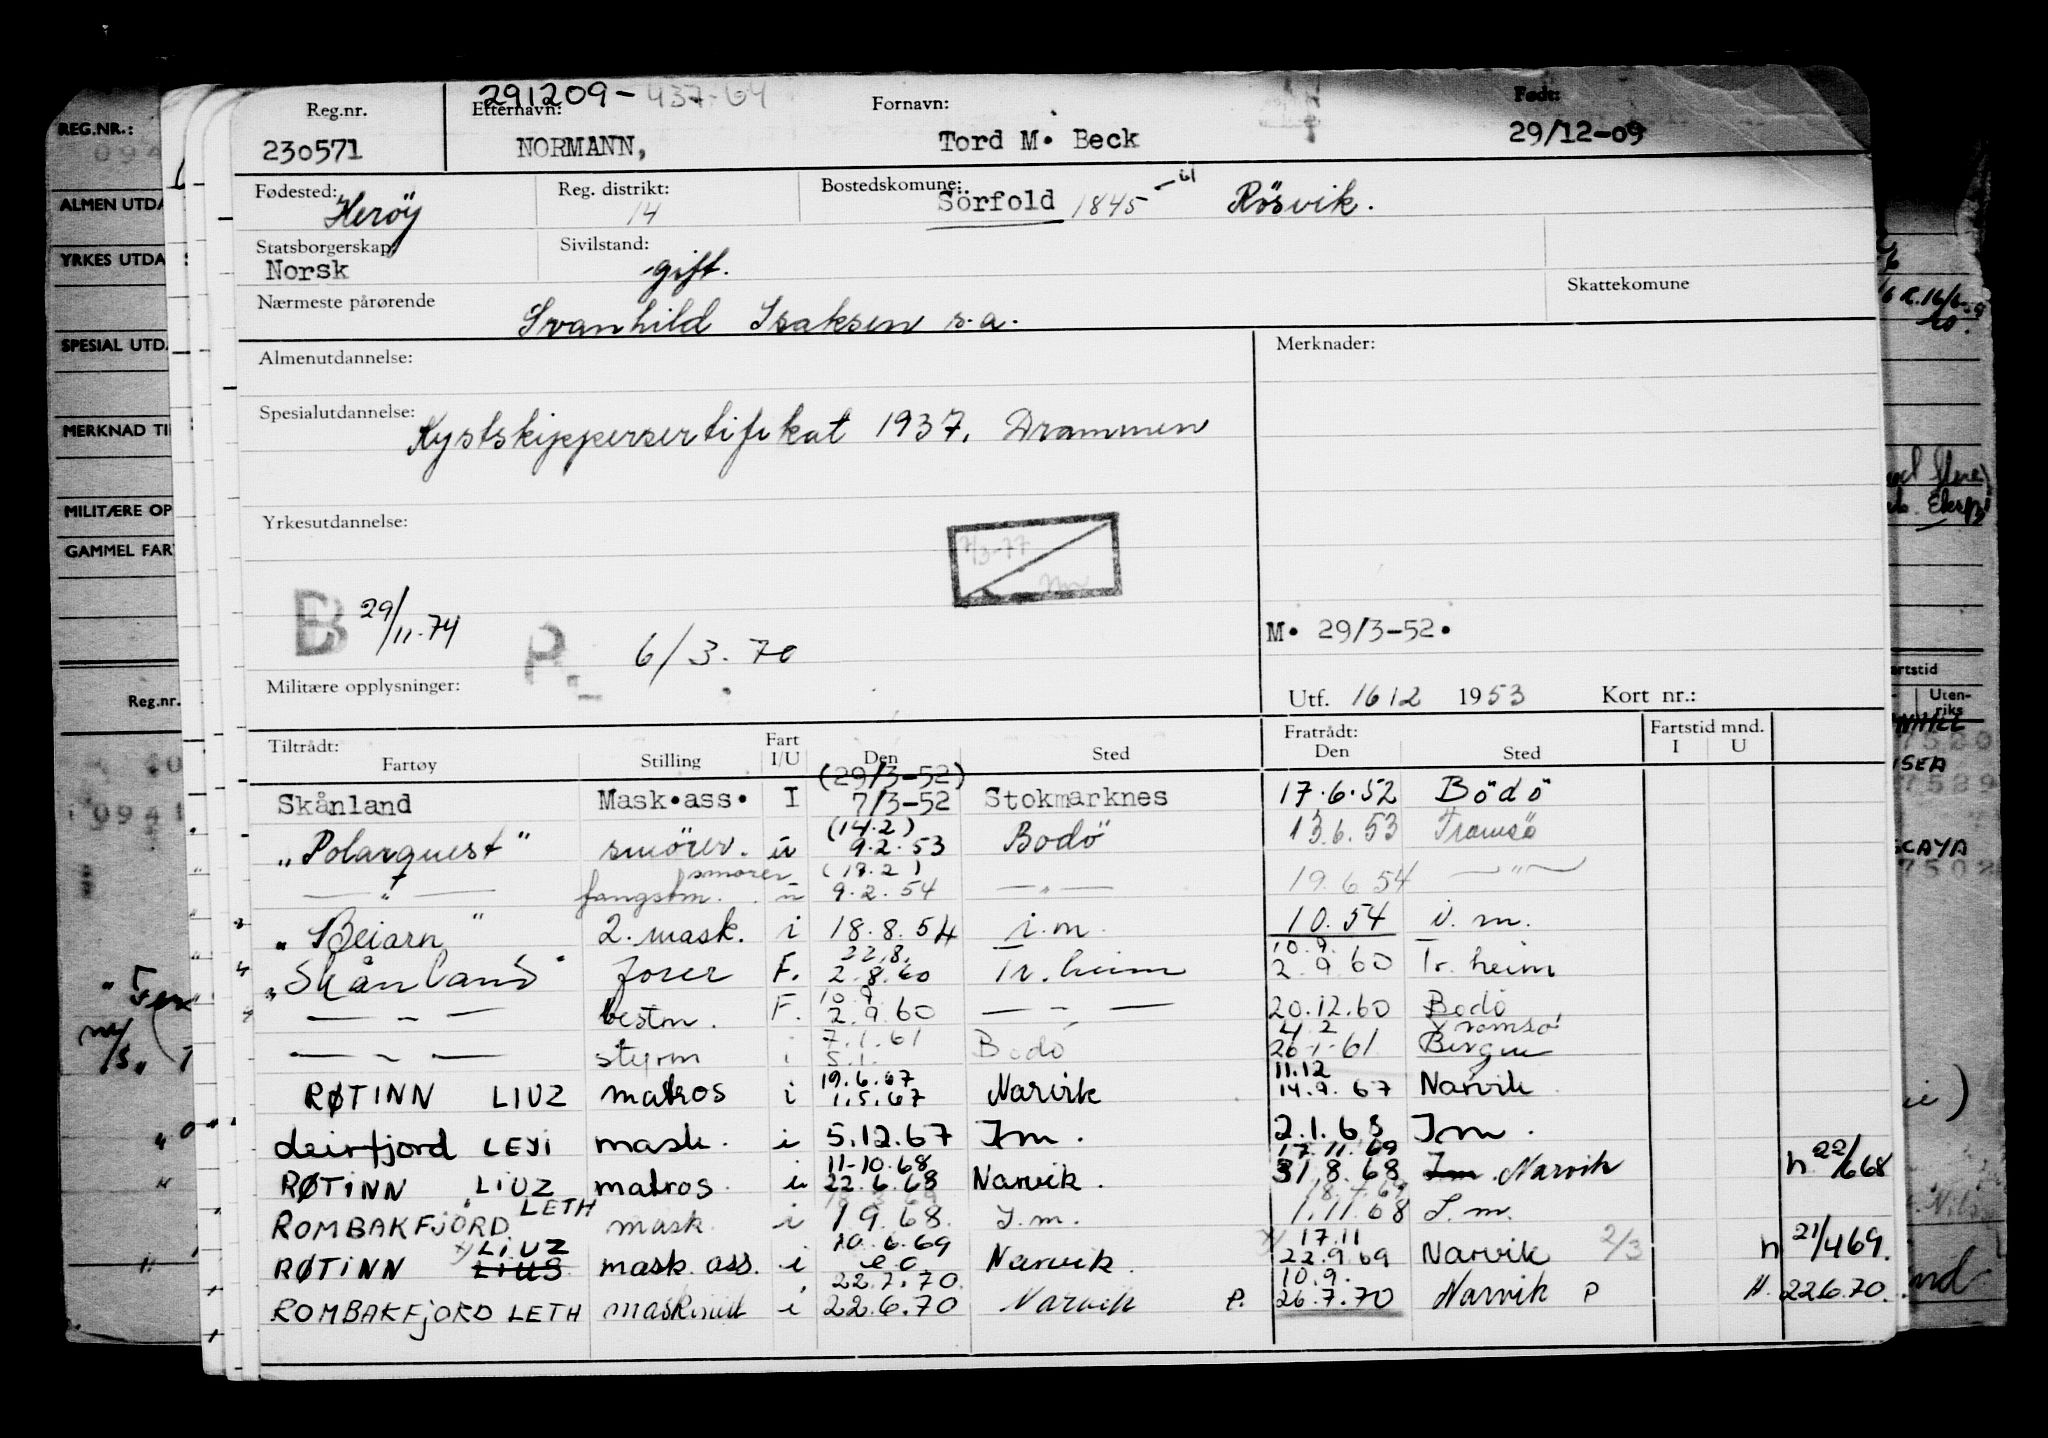 291209-437-64
Reg.nr. Etternavn: Fornavn: Født:
230571 NORMANN, Tord M. Beck 29/12-09
Fødested: Reg. distrikt: Bostedskomune:
Herøy 14 Sörfold 1845 Rösvik.
Statsborgerskap: Sivilstand:
Norsk gift.
Nærmeste pårørende Skattekomune
Svanhild Isaksen s.a.
Almenutdannelse: Merknader:
Spesialutdannelse:
Kystskippersertifikat 1937. Drammen
Yrkesutdannelse:
7/3-77
B 29/11.74
P. 6/3.70
M. 29/3-52.
Militære opplysninger: Utf. 16 12 1953 Kort nr.:
Tiltrådt: Fart Fratrådt: Fartstid mnd.
Fartøy Stilling I/U Den Sted Den Sted I U
(29/3-52)
Skånland Mask.ass. I 7/3-52 Stokmarknes 17.6.52 Bödö
(14.2)
"Polarquest" smörer. u 9.2.53 Bodö 13.6.53 Tromsö
smörer (18.2)
— " — fangstm. u 9.2.54 — " — 19.6.54 — " —
"Beiarn" 2. mask. i 18.8.54 i.m. 10.54 i.m.
22.8. 10.9.
"Skånland" fører F. 2.8.60 Tr.heim 2.9.60 Tr.heim
10.9
— " — bestm. F. 2.9.60 — " — 20.12.60 Bodö
7.1.61 4.2 Tromsö
— " — styrm i 5.1. Bodö 26.1.61 Bergen
19.6.67 11.12
RØTINN LIUZ matros i 1.5.67 Narvik 14.9.67 Narvik
Leirfjord LEYI mask. i 5.12.67 Im. 2.1.68 Im.
11-10.68 17.11.69
RØTINN LIUZ matros. i 22.6.68 Narvik. 31.8.68 Im. Narvik n 22/668
LETH
ROMBAKFJORD mask. i 1 9.68. I.m. 1.11.68 I.m.
LIUZ 10.6.69 17.11
RØTINN LIUS mask. ass. i Narvik. 22.9.69 Narvik 2/3 n 21/469.
22.7.70. 10.9.
ROMBAKFJORD LETH maskinist i 22.6.70 Narvik P. 26.7.70 Narvik P N. 226.70.
REG.NR.:
ALMEN UTDA
YRKES UTDA
SPESIAL UTD
MERKNAD TI
MILITÆRE OP
GAMMEL FAR
Reg.nr.
artstid
Uten-
riks